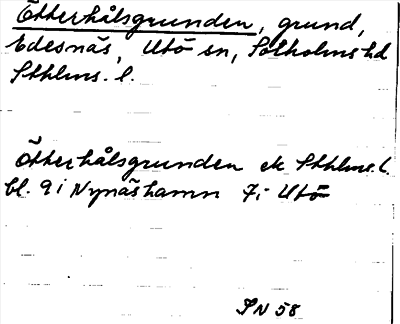 Ötterhålsgrunden, grund,
Edesnäs, Utö sn, Sotholms hd
Sthlms. l.
Ötterhålsgrunden ek Sthlms. l.
bl. 9 i Nynäshamn 7i Utö
SN 58